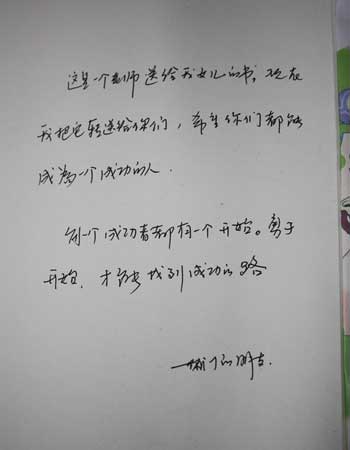 这是一个老师送给我女儿的书。现在
我把它转送给你们，希望你们都能
成为一个成功的人.
每一个成功者都有一个开始。勇于
开始，才能找到成功的路
你们的朋友.